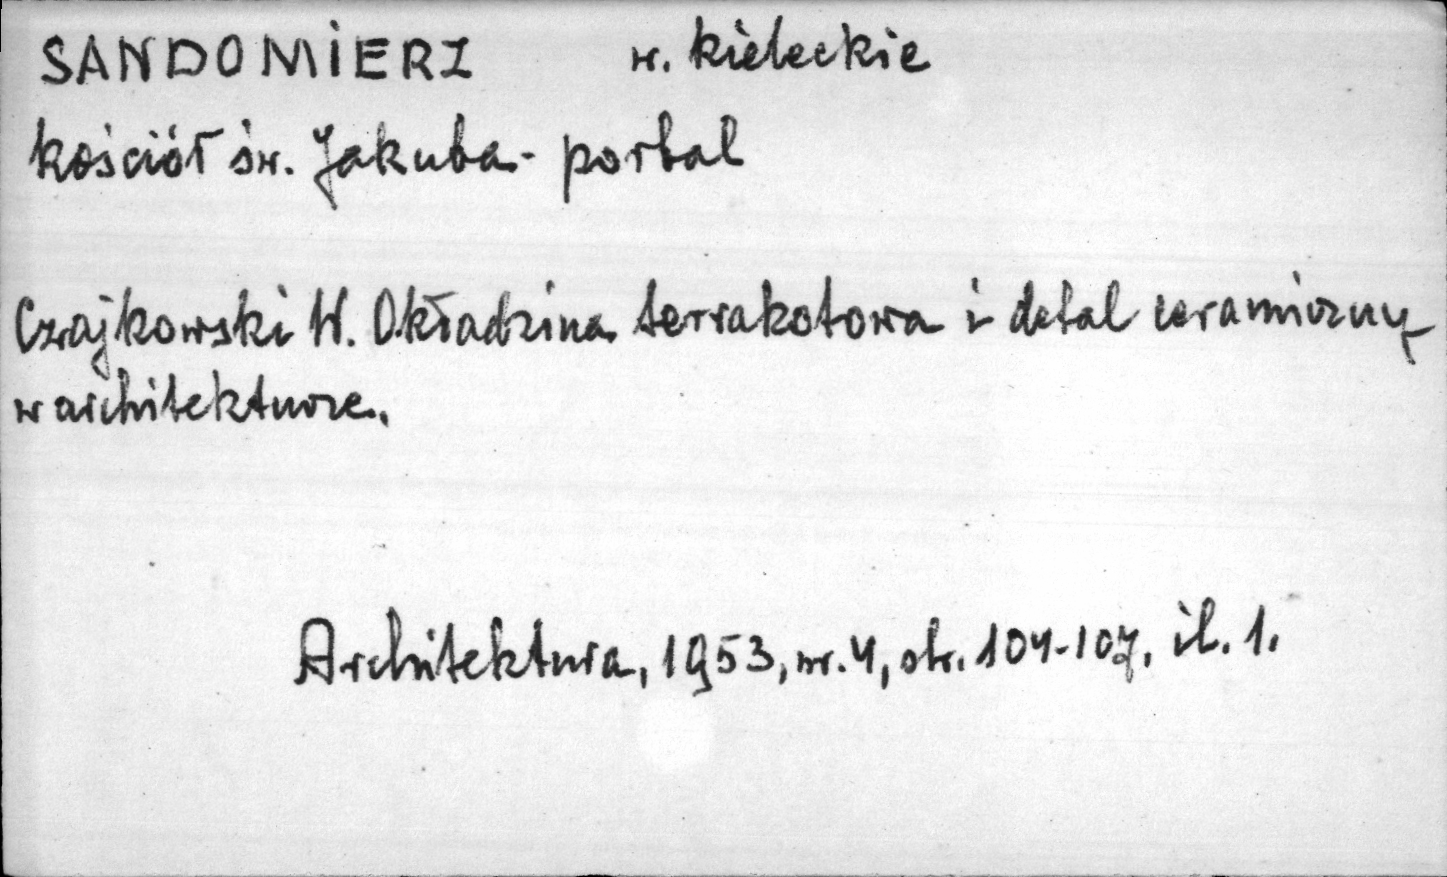 SANDOMIERZ w. kieleckie
kościół św. Jakuba - portal
Czajkowski W. Okładzina terrakotowa i detal ceramiczny
w architekturze.
Architektura, 1953, nr. 4, str. 104-107, il. 1.